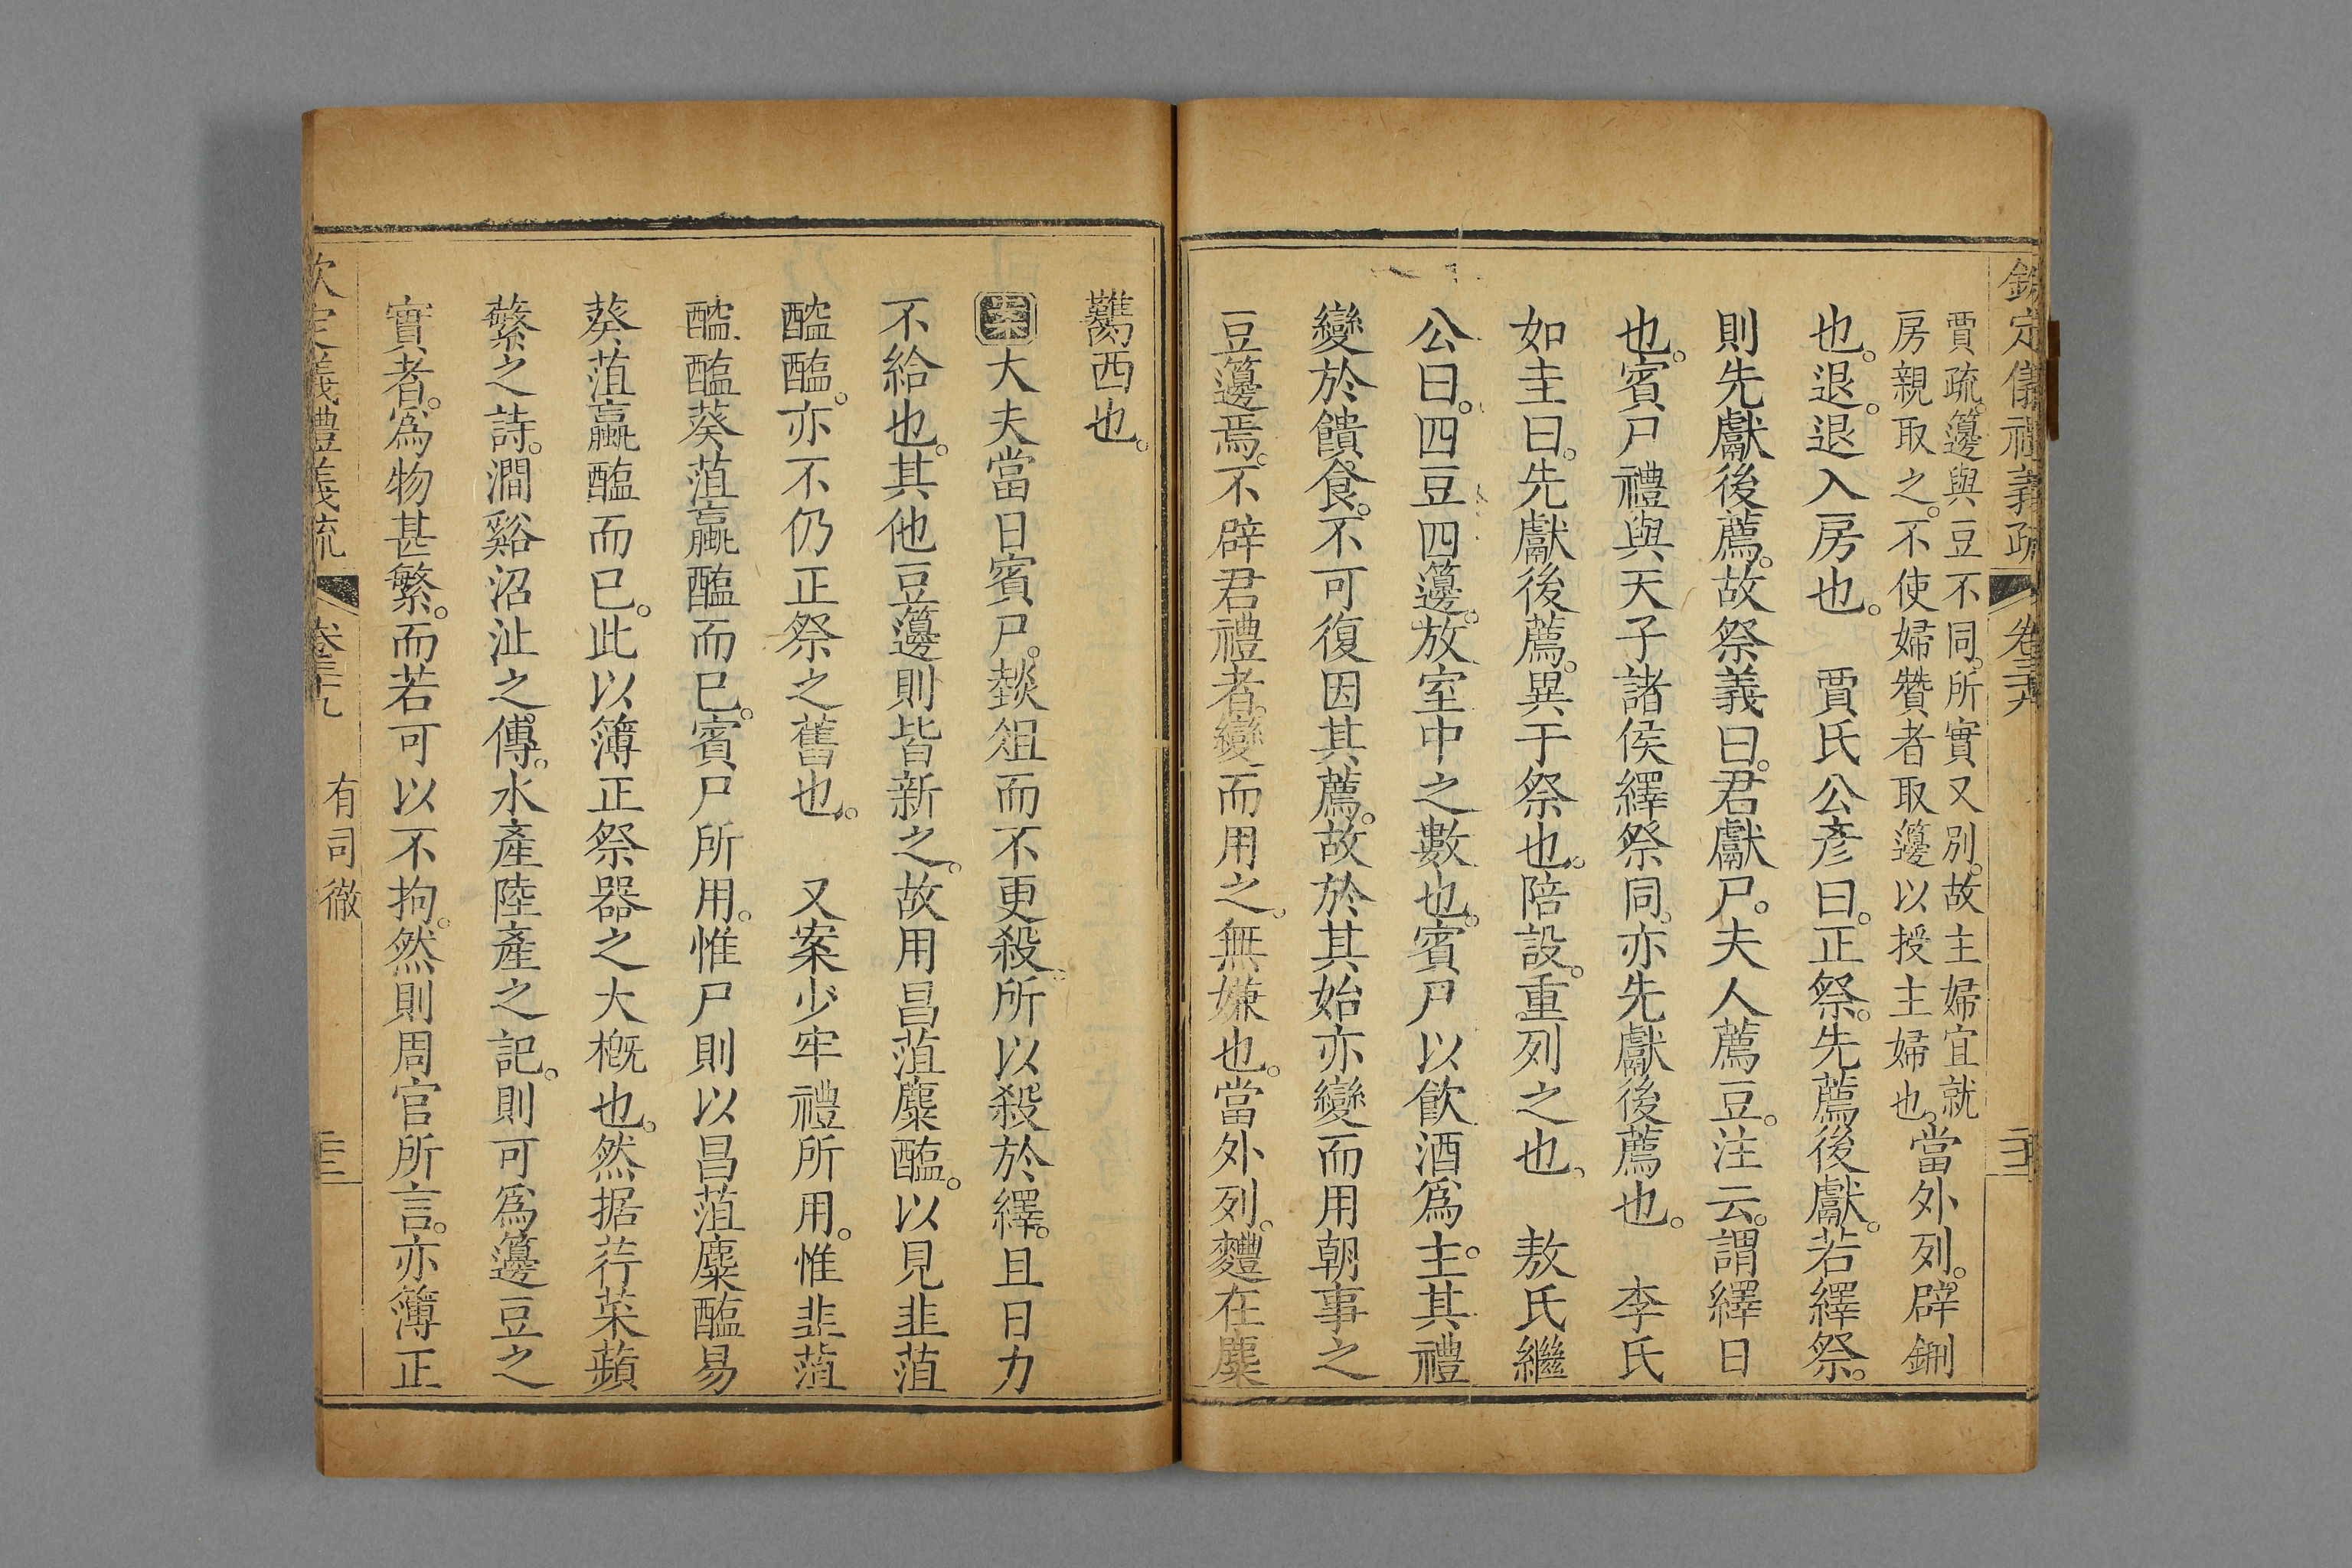 欽定儀禮義疏 卷三十九
賈疏。籩與豆不同。所實又別。故主婦宜就
房親取之。不使婦贊者取籩以授主婦也。當外列。辟鉶
也。退。退入房也。 賈氏公彥曰。正祭。先薦後獻。若繹祭。
則先獻後薦。故祭義曰。君獻尸。夫人薦豆。注云。謂繹日
也。賓尸禮與天子諸侯繹祭同。亦先獻後薦也。 李氏
如圭曰。先獻後薦。異于祭也。陪設。重列之也。 敖氏繼
公曰。四豆四籩。放室中之數也。賓尸以飲酒爲主。其禮
變於饋食。不可復因其薦。故於其始亦變而用朝事之
豆籩焉。不辟君禮者。變而用之。無嫌也。當外列。麷在麋
臡西也。
案大夫當日賓尸。燅俎而不更殺。所以殺於繹。且日力
不給也。其他豆籩則皆新之。故用昌菹麋醢。以見韭菹
醓醢。亦不仍正祭之舊也。 又案少牢禮所用。惟韭菹
醓醢葵菹蠃醢而已。賓尸所用。惟尸則以昌菹麋醢易
葵菹蠃醢而已。此以簿正祭器之大槪也。然据荇菜蘋
蘩之詩。澗谿沼沚之傳。水產陸產之記。則可爲籩豆之
實者。爲物甚繁。而若可以不拘。然則周官所言。亦簿正
欽定義禮義疏 卷三十九 有司徹